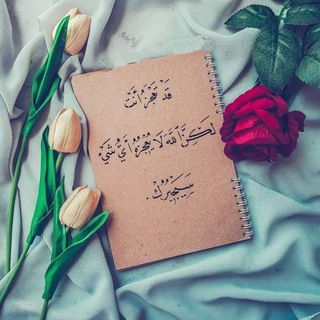 قَدْ تَعْجَزُ أَنْتَ
لَكِنَّ اللّٰهَ لَا يُعْجِزُهُ أَيُّ شَيْءٍ
سَيُجْبِرُكَ.